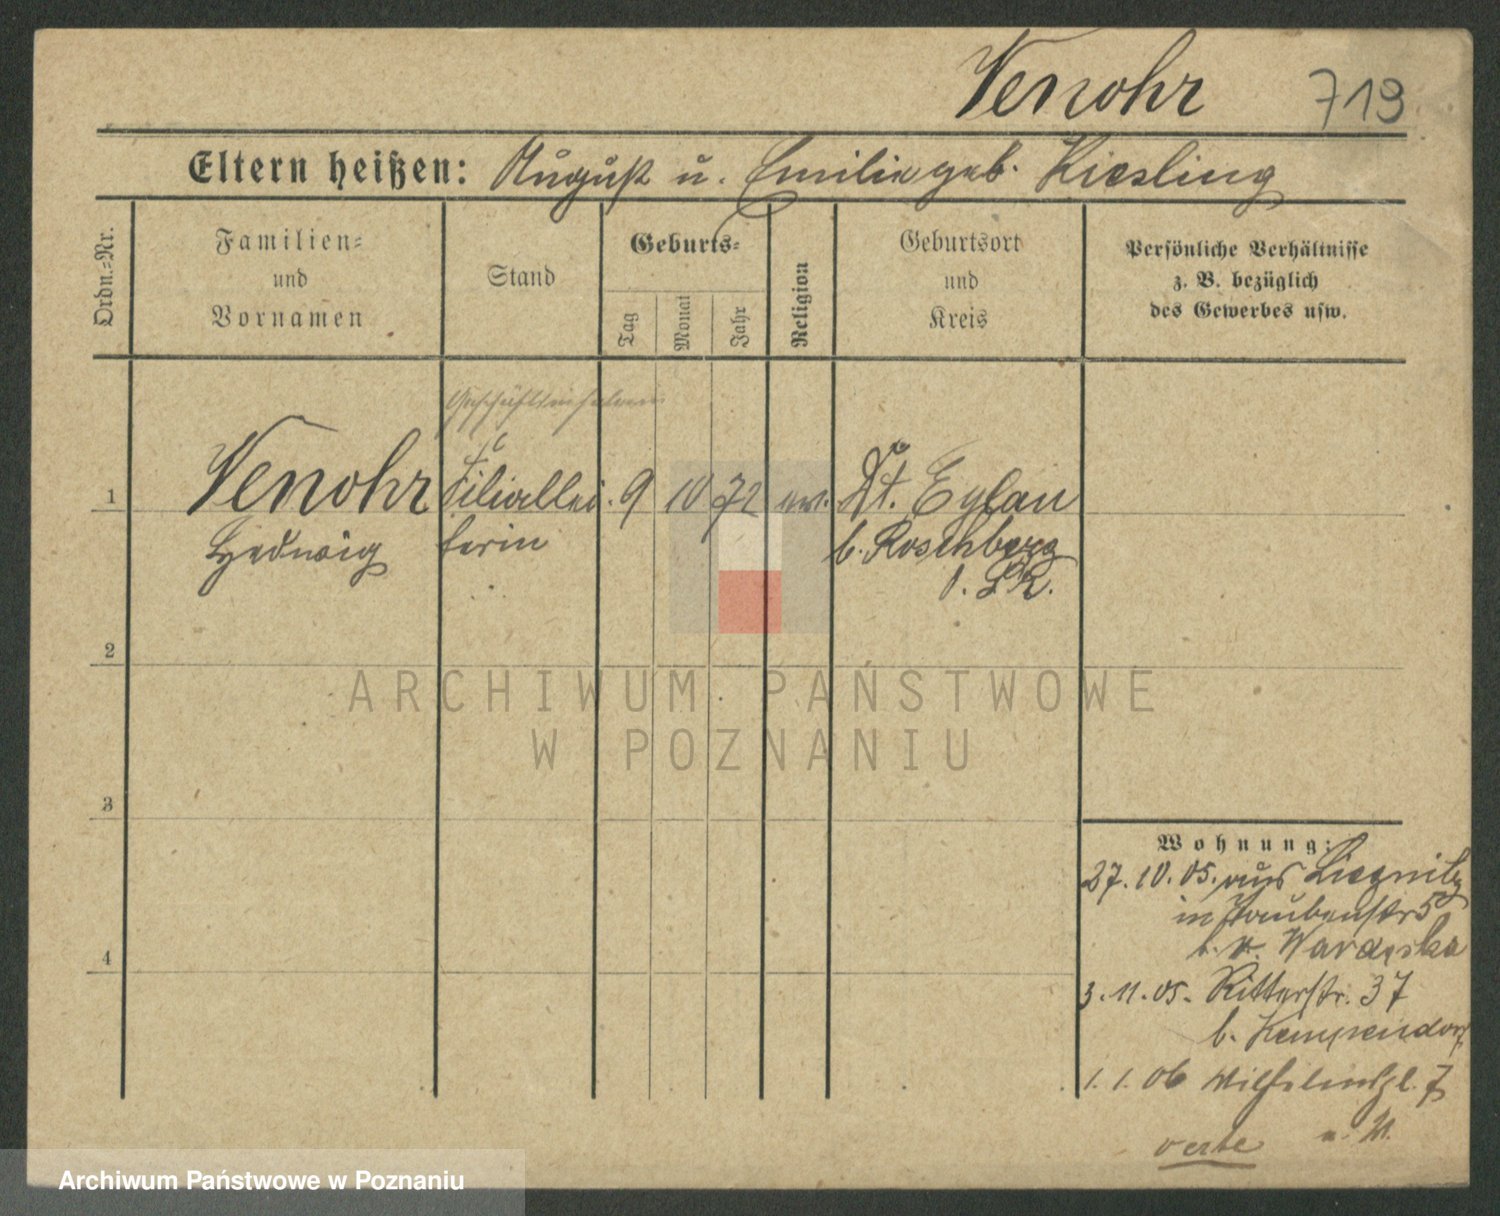 Venohr 719
Eltern heißen: August u. Emilie geb. Kiesling
Ordn.=Nr.
Familien=
und
Vornamen
Stand
Geburts=
Tag
Monat
Jahr
Religion
Geburtsort
und
Kreis
Persönliche Verhältnisse
z. B. bezüglich
des Gewerbes usw.
Geschäftsinhaberin
1 Venohr Filiallei 9 10 72 ev. Dt. Eylau
Hedwig terin b. Rosenberg
2
3
4
Wohnung:
27.10.05. aus Liegnitz
in Taubenstr 5
b.
3.11.05. Ritterstr. 37
b. Kempendorf
1.1.06 Wilhelmspl. 7
verte
ARCHIWUM PAŃSTWOWE
W POZNANIU
Archiwum Państwowe w Poznaniu